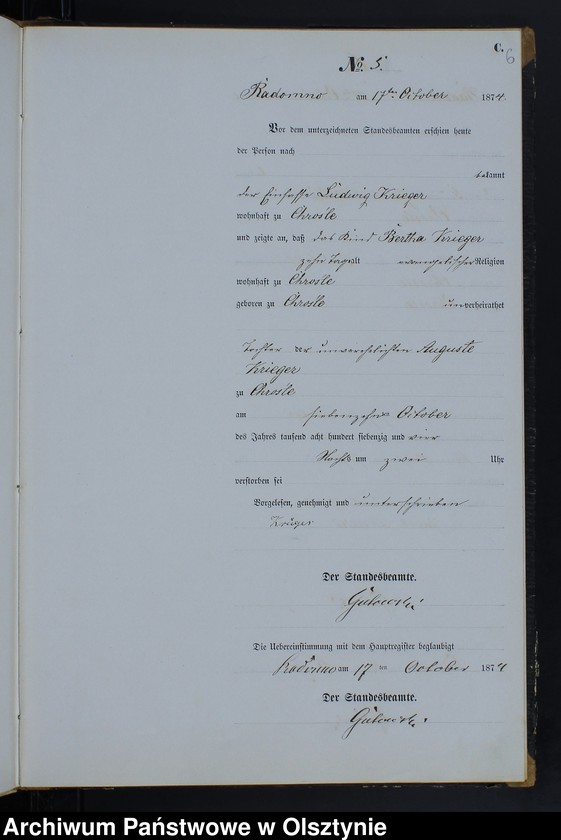 C.
6
No 5.
Radomno am 17ten October 1874.
Vor dem unterzeichneten Standesbeamten erschien heute
der Person nach
bekannt
der Einsasse Ludwig Krieger
wohnhaft zu Chrosle
und zeigte an, daß das Kind Bertha Krieger
zehn Tage alt evangelischer Religion
wohnhaft zu Chrosle
geboren zu Chrosle unverheirathet
Tochter der unverehelichten Auguste
Krieger
zu Chrosle
am siebenzehn October
des Jahres tausend acht hundert siebenzig und vier
Nachts um zwei Uhr
verstorben sei
Vorgelesen, genehmigt und unterschrieben
Der Standesbeamte.
Die Uebereinstimmung mit dem Hauptregister beglaubigt
Radomno am 17 ten October 1874
Der Standesbeamte.
Archiwum Państwowe w Olsztynie